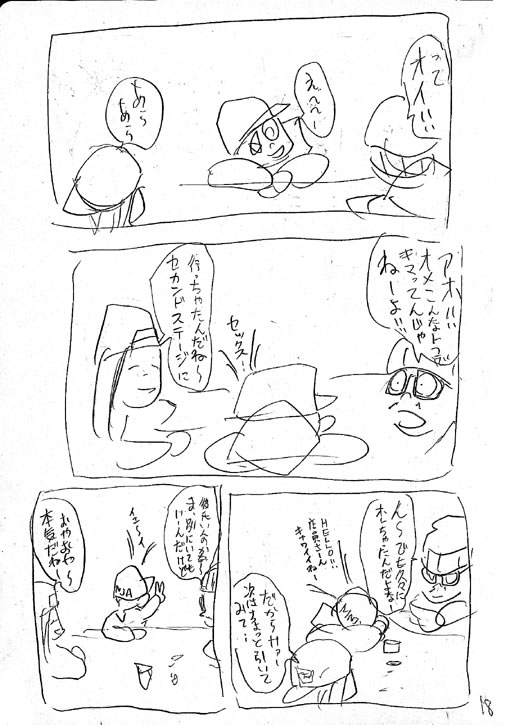 って
オイ!!!
えへへ〜
あら
あら
アホ!!!
オメこんなトコで
キマってんじゃ
ねーよ!!
セックス!
行っちゃたんだね〜
セカンドステージに
ん〜でも久々に
オレちゃったんだよねー
HELLO!!
店員さーん
キャワイイねー
だからサァー
次はちょっと引いて
みて!
彼氏いんのかな?
ま、別にいても
いーんだけどね
イエーイ
NJA
おやおや〜
本気だねー
18